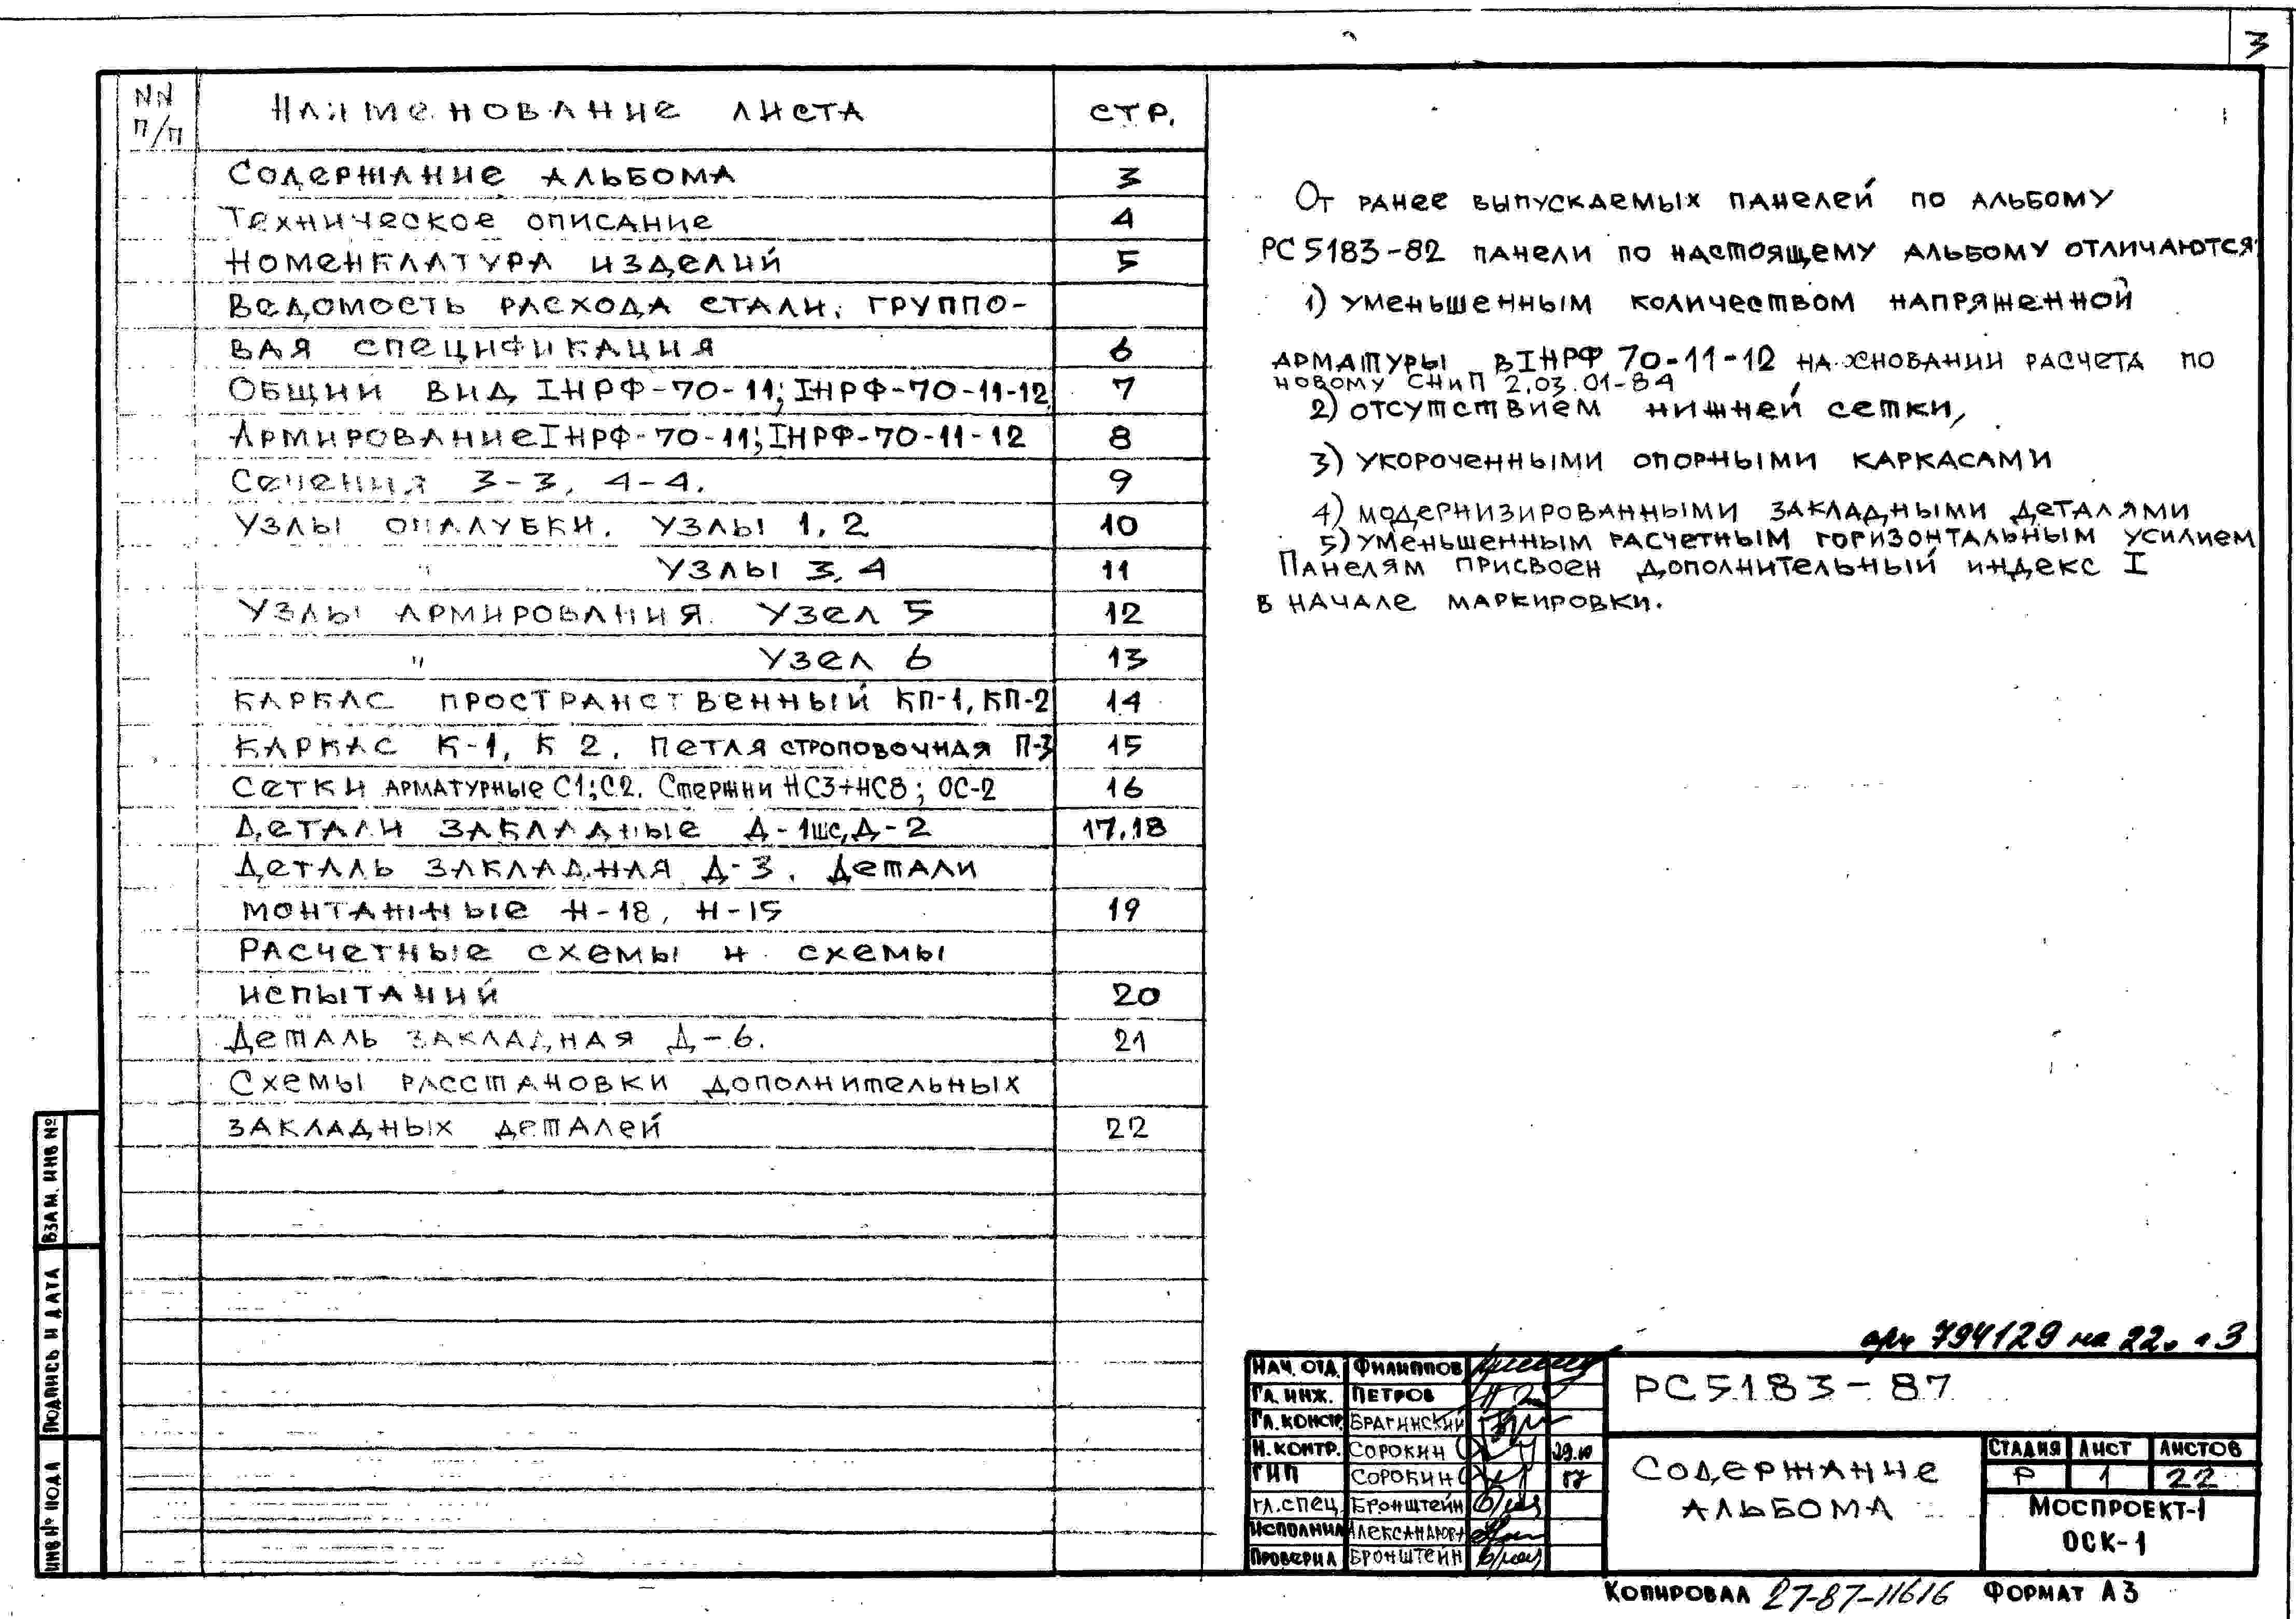 3
NN п/п Наименование листа стр.
Содержание альбома 3
Техническое описание 4
Номенклатура изделий 5
Ведомость расхода стали, группо-
вая спецификация 6
Общий вид IНРФ-70-11; IНРФ-70-11-12 7
Армирование IНРФ-70-11; IНРФ-70-11-12 8
Сечения 3-3, 4-4. 9
Узлы опалубки. Узлы 1, 2 10
" Узлы 3, 4 11
Узлы армирования. Узел 5 12
" Узел 6 13
Каркас пространственный КП-1, КП-2 14
Каркас К-1, К 2. Петля строповочная П-3 15
Сетки арматурные С1; С2. Стержни НС3÷НС8; ОС-2 16
Детали закладные Д-1шс, Д-2 17.18
Деталь закладная Д-3. Детали
монтажные Н-18, Н-15 19
Расчетные схемы и схемы
испытаний 20
Деталь закладная Д-6. 21
Схемы расстановки дополнительных
закладных деталей 22
От ранее выпускаемых панелей по альбому
РС 5183-82 панели по настоящему альбому отличаются:
1) уменьшенным количеством напряженной
арматуры в IНРФ 70-11-12 на основании расчета по
новому СНиП 2.03.01-84
2) отсутствием нижней сетки,
3) укороченными опорными каркасами
4) модернизированными закладными деталями
5) уменьшенным расчетным горизонтальным усилием
Панелям присвоен дополнительный индекс I
в начале маркировки.
взам. инв №
подпись и дата
инв № подл
арх 794129 на 22 л 3
Нач. отд. Филиппов
Гл. инж. Петров
Гл. констр. Брагинский
Н. контр. Сорокин 29.10
ГИП Сорокин 87
гл. спец. Бронштейн
Исполнил Александрова
Проверил Бронштейн
РС 5183-87
Содержание
альбома
стадия лист листов
Р 1 22
Моспроект-1
ОСК-1
Копировал 27-87-11616 Формат А3